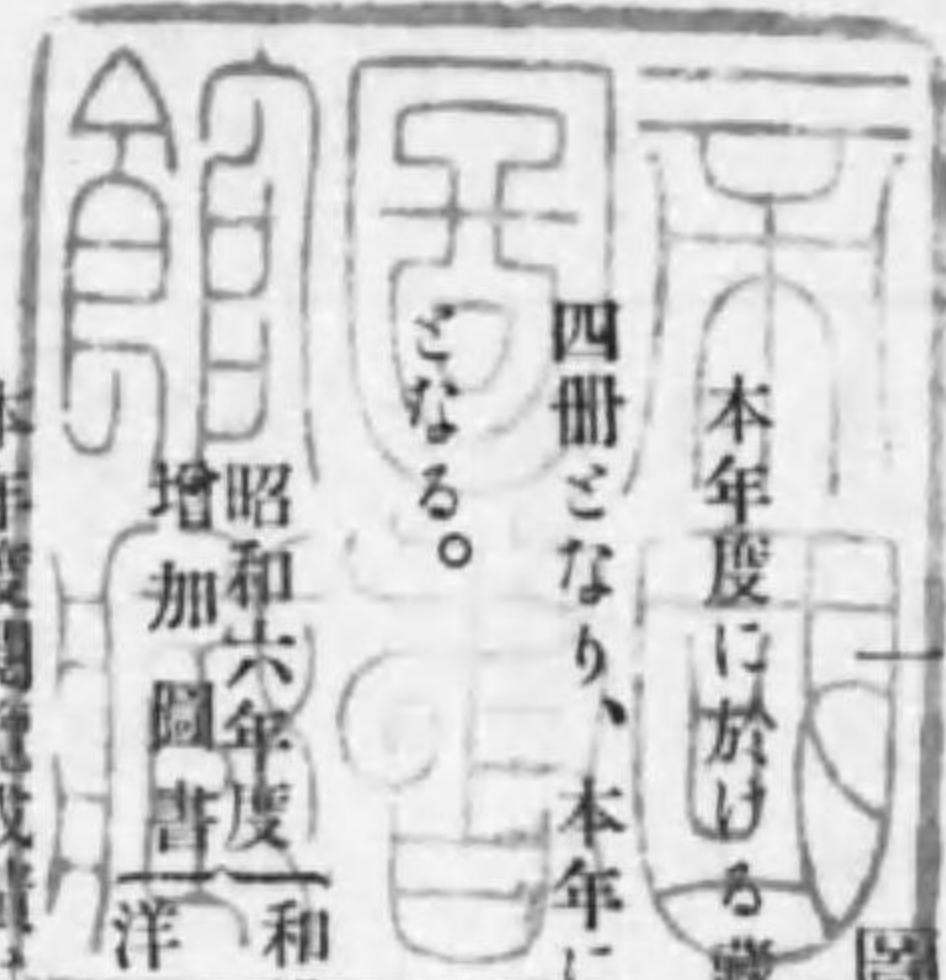 本年度に於ける
四冊となり、本年に
となる。
昭和六年度
增加圖書
和
洋
帝國
圖書
館